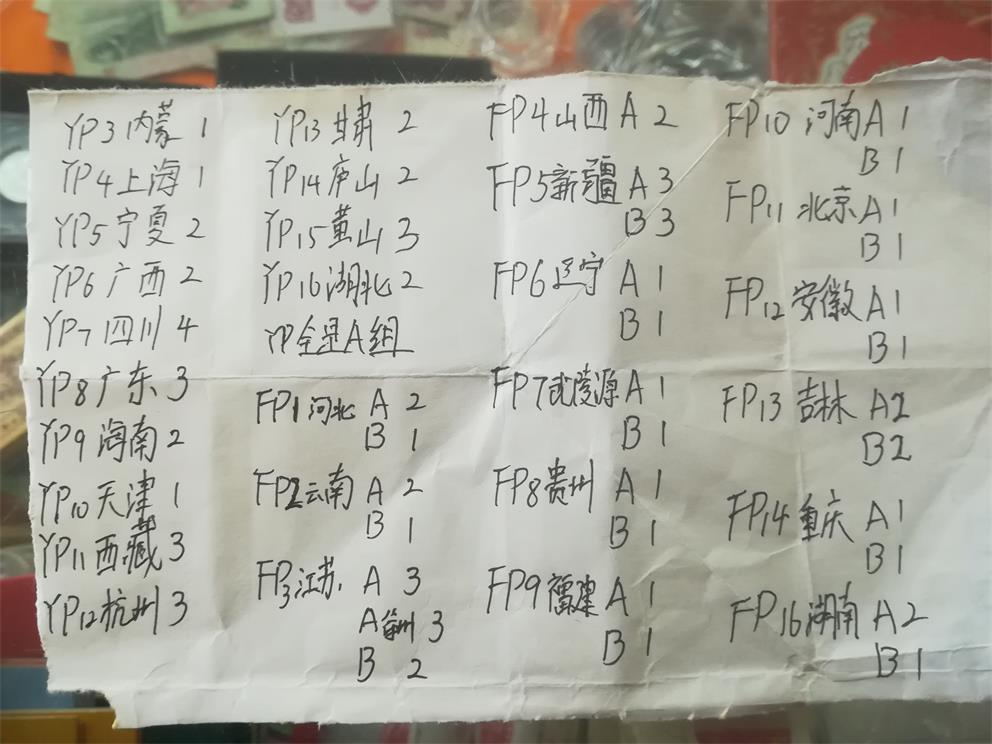 YP3内蒙 1
YP4上海 1
YP5宁夏 2
YP6广西 2
YP7四川 4
YP8广东 3
YP9海南 2
YP10天津 1
YP11西藏 3
YP12杭州 3
YP13甘肃 2
YP14庐山 2
YP15黄山 3
YP16湖北 2
YP全是A组
FP1河北 A 2
B 1
FP2云南 A 2
B 1
FP3江苏 A 3
A徐州 3
B 2
FP4山西 A 2
FP5新疆 A 3
B 3
FP6辽宁 A 1
B 1
FP7武陵源 A 1
B 1
FP8贵州 A 1
B 1
FP9福建 A 1
B 1
FP10 河南 A 1
B 1
FP11 北京 A 1
B 1
FP12 安徽 A 1
B 1
FP13 吉林 A2
B2
FP14 重庆 A 1
B 1
FP16湖南 A2
B 1